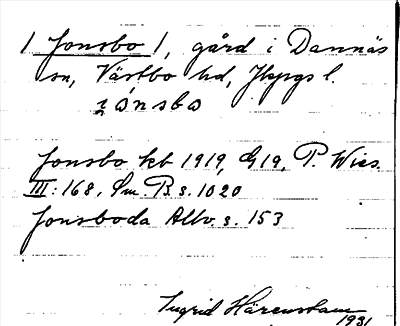 / Jonsbo /, gård i Dannäs
sn, Västbo hd, Jkpgs l.
Jonsbo kb 1919, G19, P. Wies.
III: 168, Sm. B s. 1020
Jonsboda Allv. s. 153
Ingrid Härenstam
1931